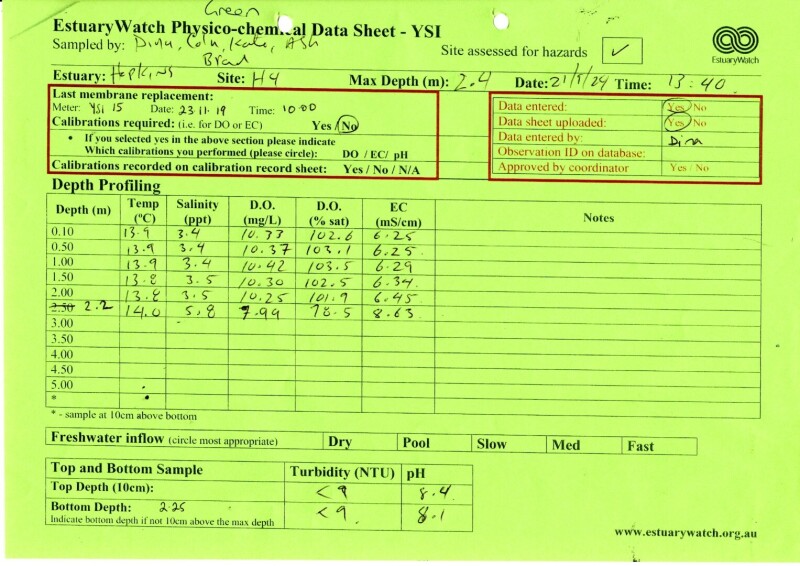 Green
EstuaryWatch Physico-chemical Data Sheet - YSI
Sampled by: Dina, Colin, Kate, Ash
Brad
Site assessed for hazards ✓
EstuaryWatch
Estuary: Hopkins Site: H4 Max Depth (m): 2.4 Date: 21/5/24 Time: 13:40
Last membrane replacement:
Meter: YSI 15 Date: 23.11.19 Time: 10:00
Calibrations required: (i.e. for DO or EC) Yes/No
• If you selected yes in the above section please indicate
Which calibrations you performed (please circle): DO / EC/ pH
Calibrations recorded on calibration record sheet: Yes / No / N/A
Data entered: Yes/No
Data sheet uploaded: Yes/No
Data entered by: Dina
Observation ID on database:
Approved by coordinator Yes / No
Depth Profiling
Depth (m) Temp (ºC) Salinity (ppt) D.O. (mg/L) D.O. (% sat) EC (mS/cm) Notes
0.10 13.9 3.4 10.33 102.6 6.25
0.50 13.9 3.4 10.37 103.1 6.25
1.00 13.9 3.4 10.42 103.5 6.29
1.50 13.8 3.5 10.30 102.5 6.34
2.00 13.8 3.5 10.25 101.9 6.45
2.50 2.2 14.0 5.8 7.99 78.5 8.63
3.00
3.50
4.00
4.50
5.00
*
* - sample at 10cm above bottom
Freshwater inflow (circle most appropriate) Dry Pool Slow Med Fast
Top and Bottom Sample Turbidity (NTU) pH
Top Depth (10cm): <9 8.4
Bottom Depth: 2.25 <9 8.1
Indicate bottom depth if not 10cm above the max depth
www.estuarywatch.org.au